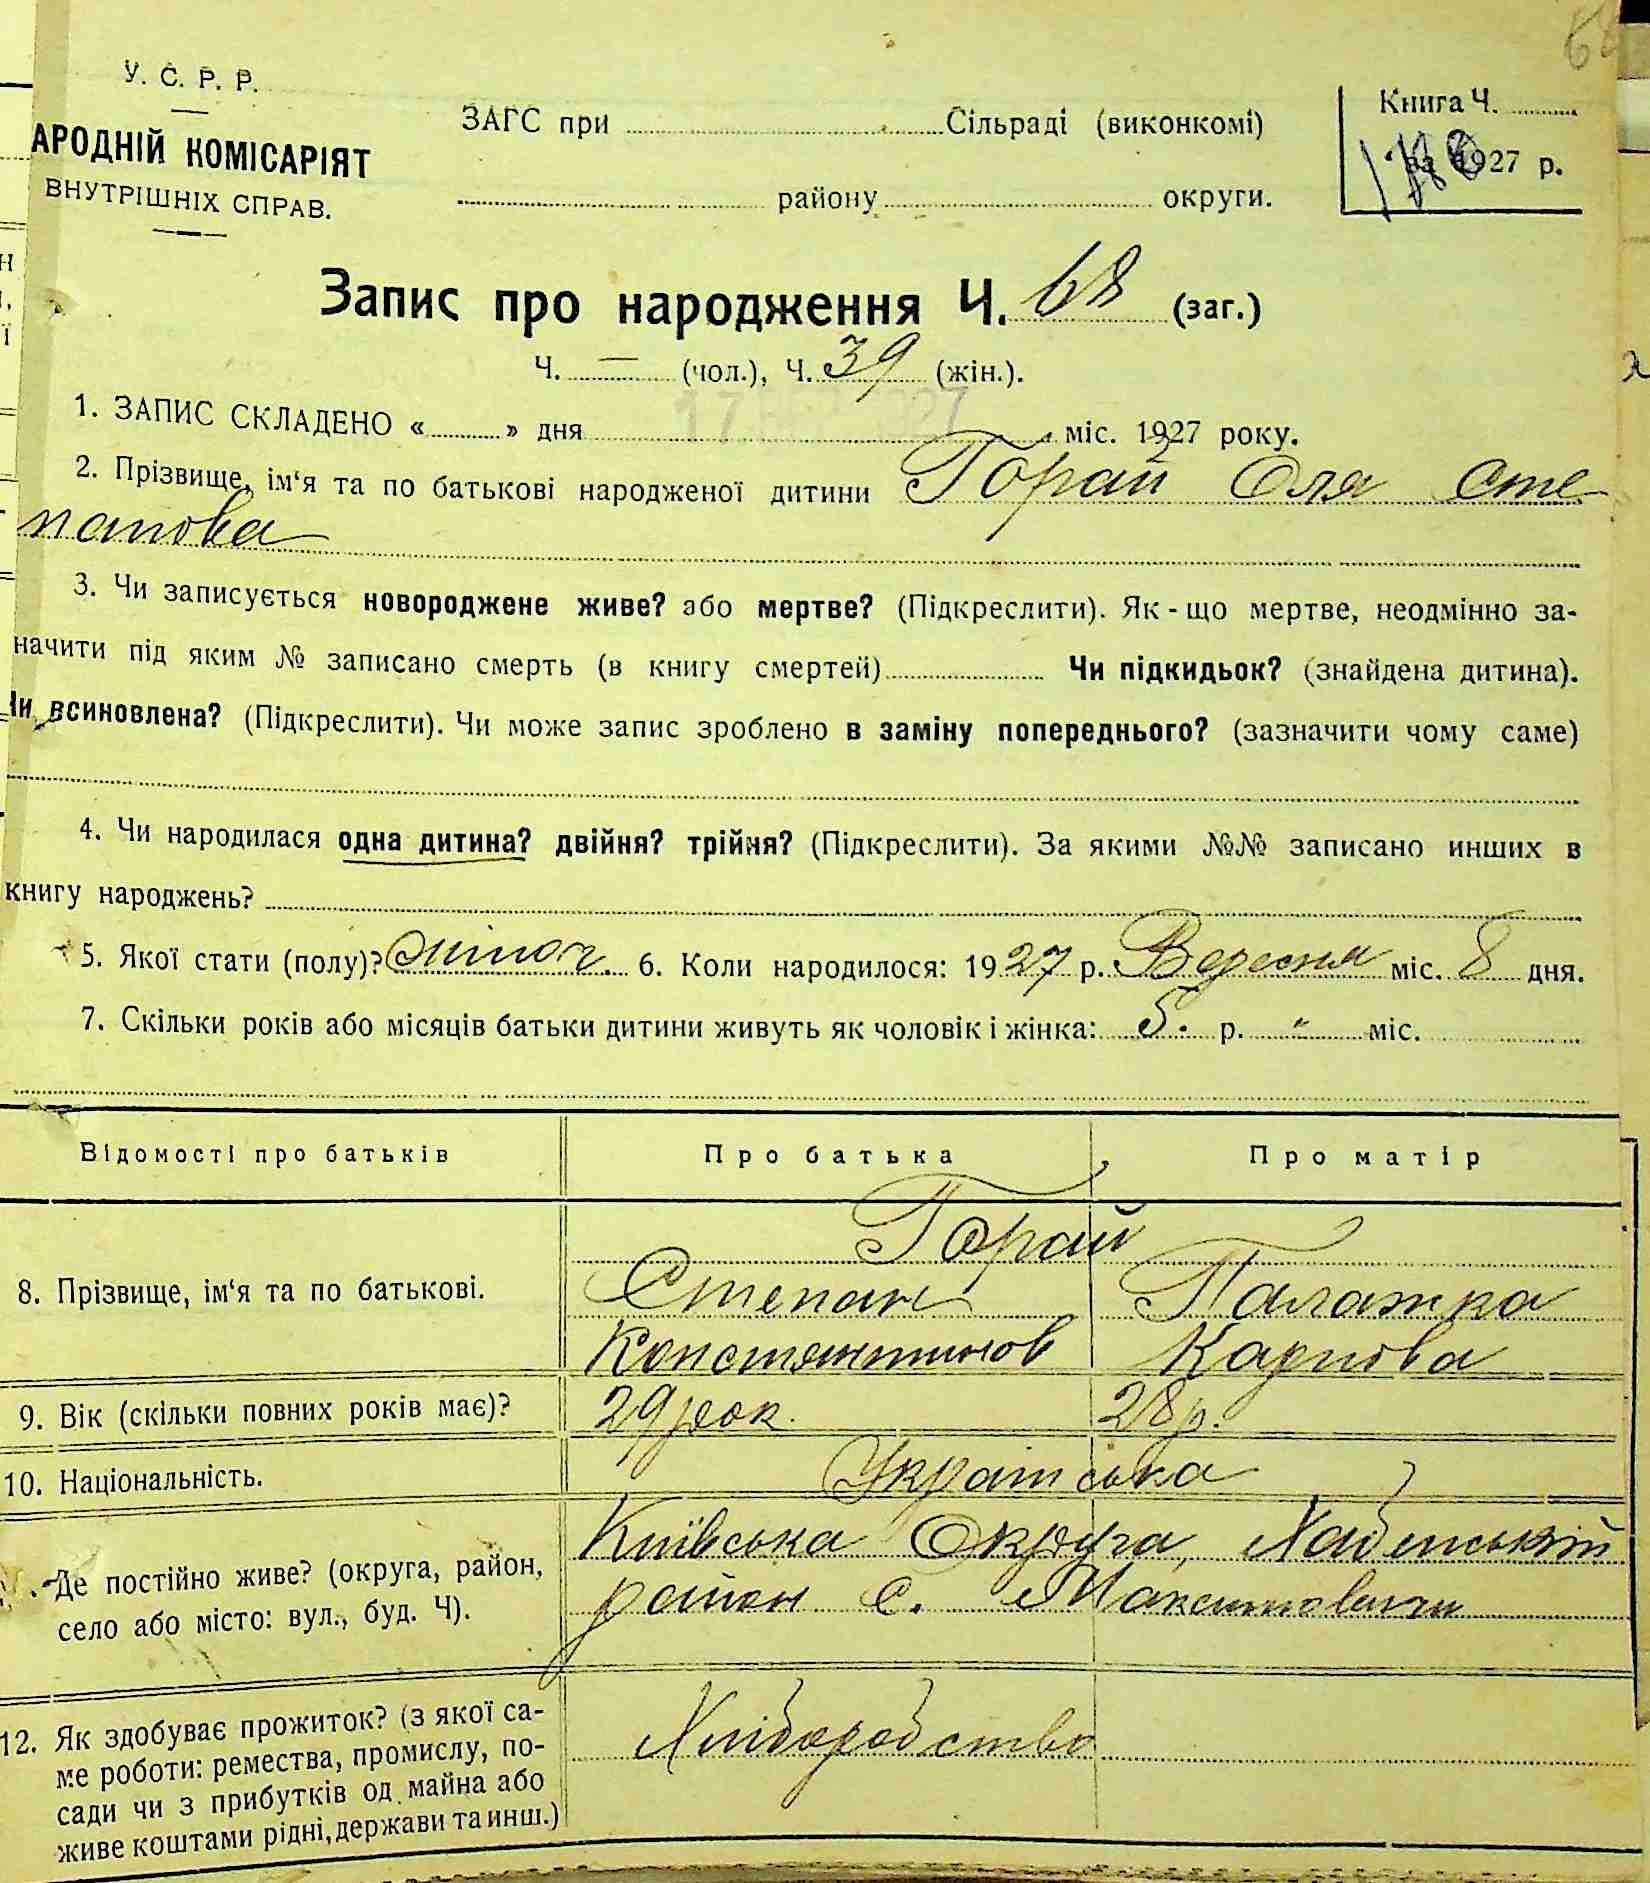 У. С. Р. Р.
АРОДНІЙ КОМІСАРІЯТ
ВНУТРІШНІХ СПРАВ.
ЗАГС при Сільраді (виконкомі)
району округи.
Книга Ч.
за 1927 р.
Запис про народження Ч. 68 (заг.)
Ч. — (чол.), Ч. 39 (жін.).
1. ЗАПИС СКЛАДЕНО « » дня 17 1927 міс. 1927 року.
2. Прізвище, ім‘я та по батькові народженої дитини Горай Оля Сте
панова
3. Чи записується новороджене живе? або мертве? (Підкреслити). Як-що мертве, неодмінно за-
начити під яким № записано смерть (в книгу смертей) Чи підкидьок? (знайдена дитина).
Чи всиновлена? (Підкреслити). Чи може запис зроблено в заміну попереднього? (зазначити чому саме)
4. Чи народилася одна дитина? двійня? трійня? (Підкреслити). За якими №№ записано инших в
книгу народжень?
5. Якої стати (полу)? жіноч. 6. Коли народилося: 1927 р. Вересня міс. 8 дня.
7. Скільки років або місяців батьки дитини живуть як чоловік і жінка: 5. р. " міс.
Відомості про батьків Про батька Про матір
Горай
8. Прізвище, ім‘я та по батькові. Степан Палажка
Константинов Карпова
9. Вік (скільки повних років має)? 29 рок. 28 р.
10. Національність. Українська
Київська Округа, Хабенський
Де постійно живе? (округа, район, район с. Максимовичи
село або місто: вул., буд. Ч).
12. Як здобуває прожиток? (з якої са-
ме роботи: ремества, промислу, по- Хліборобство
сади чи з прибутків од майна або
живе коштами рідні, держави та инш.)